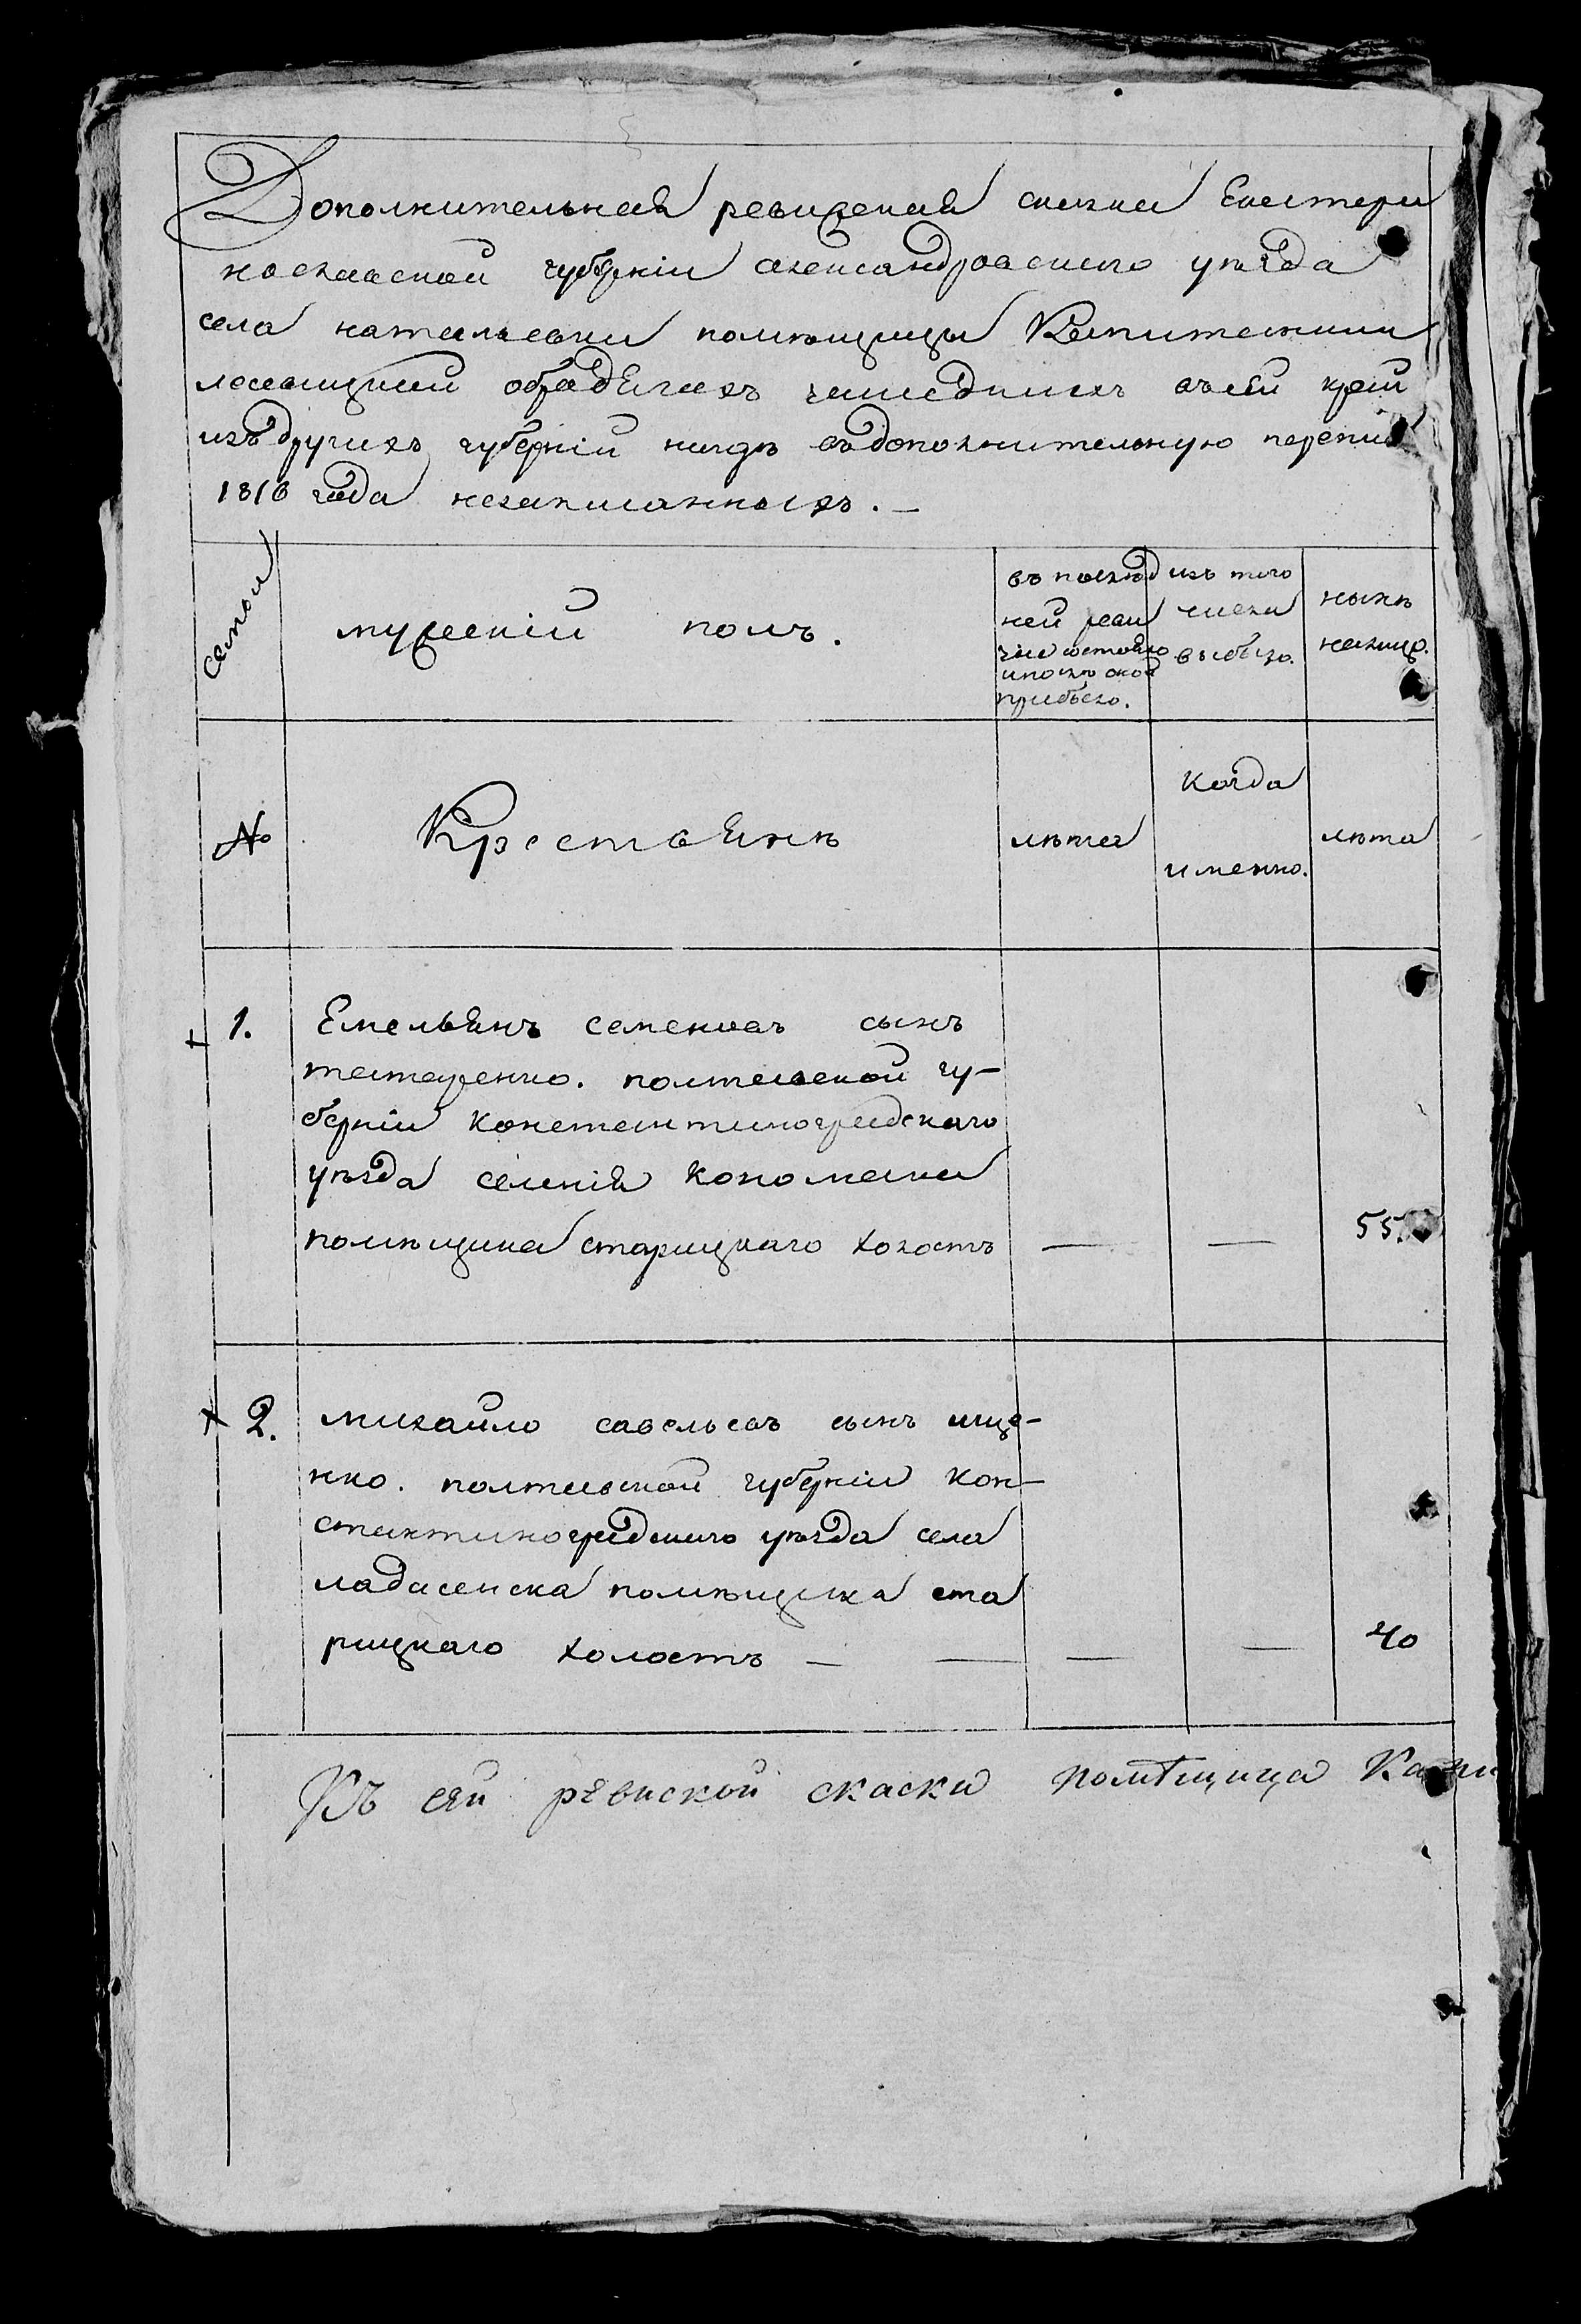 Дополнительная ревизская сказка Екатери
нославской губерніи александровскаго уѣзда
села натальевки помѣщицы Капитанши
лесевицкой обродягахъ зашедшихъ въ сей край
изъ другихъ губерній нигдѣ въ дополнительную перепись
1816 года незаписанныхъ.
семьи
мужескій полъ.
въ послѣд
ней реви
зіи состояло
и послѣ оной
прибыло.
изъ того
числа
выбыло.
нынѣ
налицо.
№
Крестьянѣ
лѣта
Когда
именно.
лѣта
1. Емельянъ семеновъ сынъ
тестаренко. полтавской гу-
берніи константиноградскаго
уѣзда селенія
помѣщика старицкаго холостъ — — 55.
2. михайло савельевъ сынъ ище-
нко. полтавской губерніи кон-
стантиноградскаго уѣзда села
помѣщика ста
рицкаго холостъ — — — — 40
Къ сей ревиской скаски помѣщица Капи